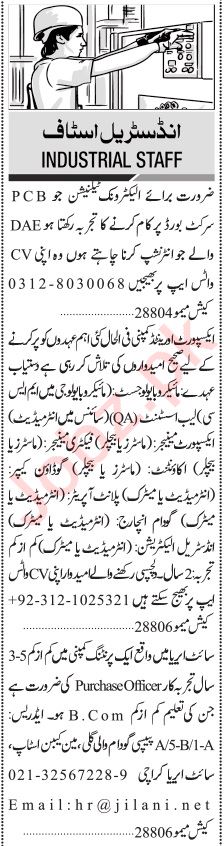 انڈسٹریل اسٹاف
INDUSTRIAL STAFF
ضرورت برائے الیکٹرونک ٹیکنیشن جو PCB
سرکٹ بورڈ پر کام کرنے کا تجربہ رکھتا ہو DAE
والے جو انٹرنشپ کرنا چاہتے ہوں وہ اپنی CV
واٹس ایپ پر بھیجیں 0312-8030068
کیش میمو 28804
ایکسپورٹ اورینٹڈ کمپنی فی الحال کئی اہم عہدوں کو پر کرنے
کے لیے صحیح امیدواروں کی تلاش کر رہی ہے دستیاب
عہدے: مائیکروبایولوجسٹ: (مائیکروبایولوجی میں ایم ایس
سی) لیب اسسٹنٹ (QA) (سائنس میں انٹرمیڈیٹ)
ایکسپورٹ مینیجر: (ماسٹرز یا بیچلر) فیکٹری مینیجر: (ماسٹرز یا
بیچلر) اکاؤنٹنٹ: (ماسٹرز یا بیچلر) گوڈاؤن کیپر:
(انٹرمیڈیٹ یا میٹرک) پلانٹ آپریٹر: (انٹرمیڈیٹ یا
میٹرک) گودام انچارج: (انٹرمیڈیٹ یا میٹرک)
انڈسٹریل الیکٹریشن: (انٹرمیڈیٹ یا میٹرک) کم از کم
تجربہ: 2 سال۔ دلچسپی رکھنے والے امیدوار اپنی CV واٹس
ایپ پر بھیج سکتے ہیں +92-312-1025321
کیش میمو 28806
سائٹ ایریا میں واقع ایک پرنٹنگ کمپنی میں کم از کم 3-5
سال تجربہ کار Purchase Officer کی ضرورت ہے
جن کی تعلیم کم از کم B.Com ہو۔ ایڈریس:
A/5-B/1-A پیپسی گودام والی گلی، مین کیبن اسٹاپ،
سائٹ ایریا کراچی 021-32567228-9
Email:hr@jilani.net
کیش میمو 28806